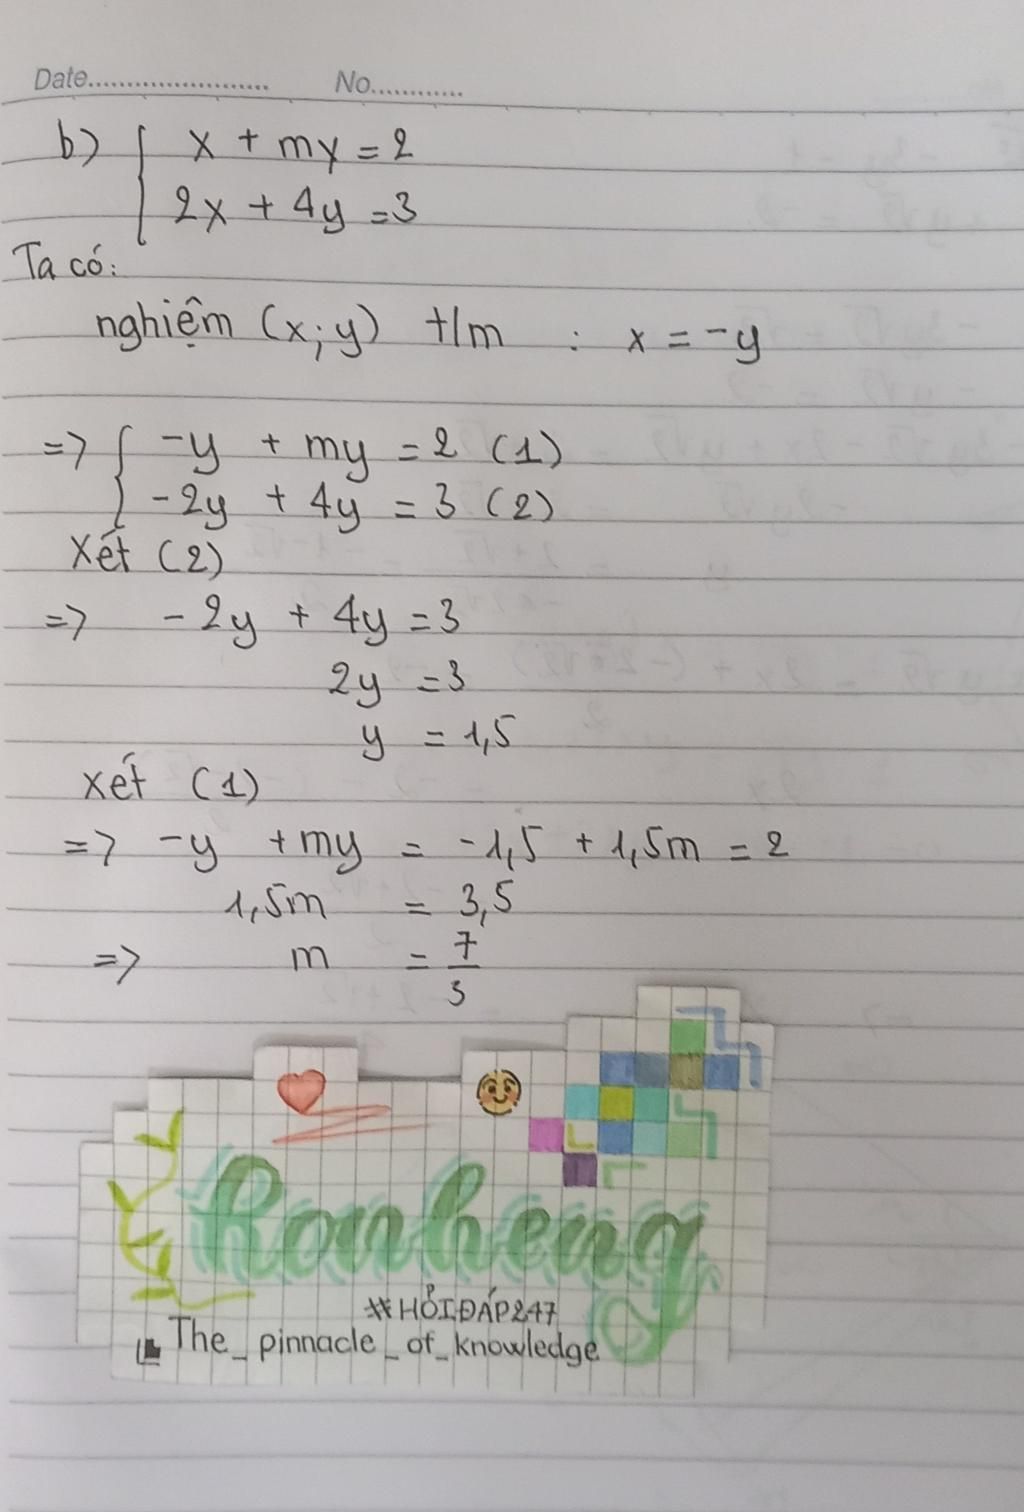 Date........................ No............
b) { x + my = 2
2x + 4y = 3
Ta có:
nghiệm (x; y) t/m : x = -y
=> { -y + my = 2 (1)
-2y + 4y = 3 (2)
Xét (2)
=> -2y + 4y = 3
2y = 3
y = 1,5
xét (1)
=> -y + my = -1,5 + 1,5m = 2
1,5m = 3,5
=> m = 7/3
Ronheng
#HỎIĐÁP247
The_pinnacle_of_knowledge